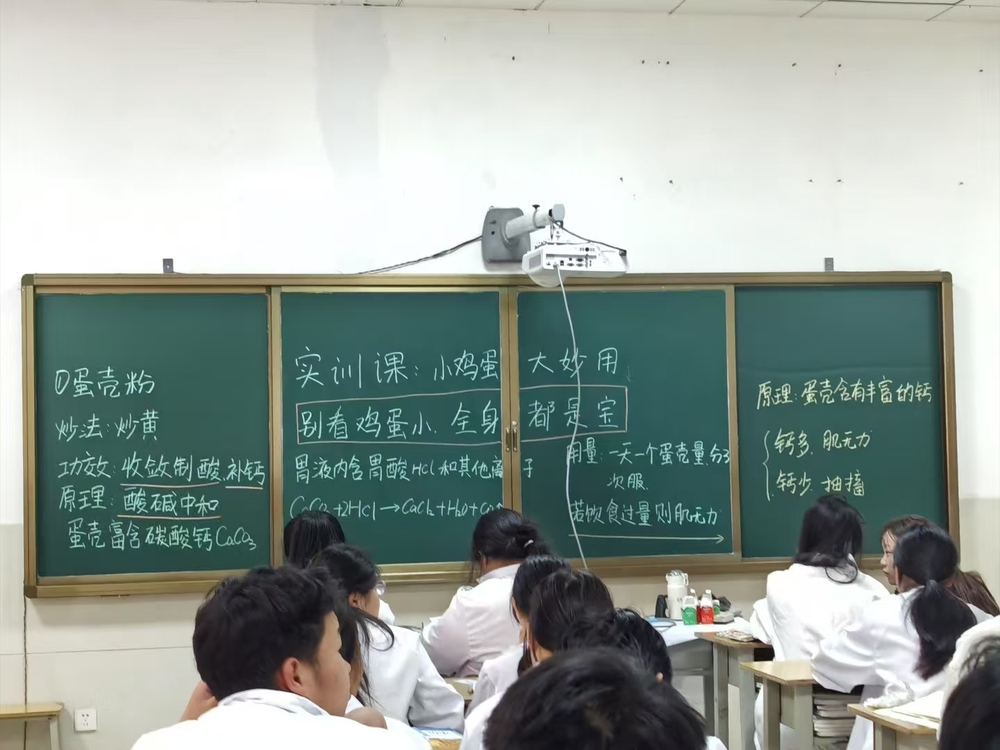 ①蛋壳粉
炒法:炒黄
功效:收敛制酸、补钙
原理:酸碱中和
蛋壳富含碳酸钙CaCO3
实训课:小鸡蛋大妙用
别看鸡蛋小、全身都是宝
胃液内含胃酸HCl和其他离子
CaCO3+2HCl→CaCl2+H2O+CO2↑
用量:一天一个蛋壳量,分3
次服
若饮食过量则肌无力
原理:蛋壳含有丰富的钙
钙多、肌无力
钙少、抽搐